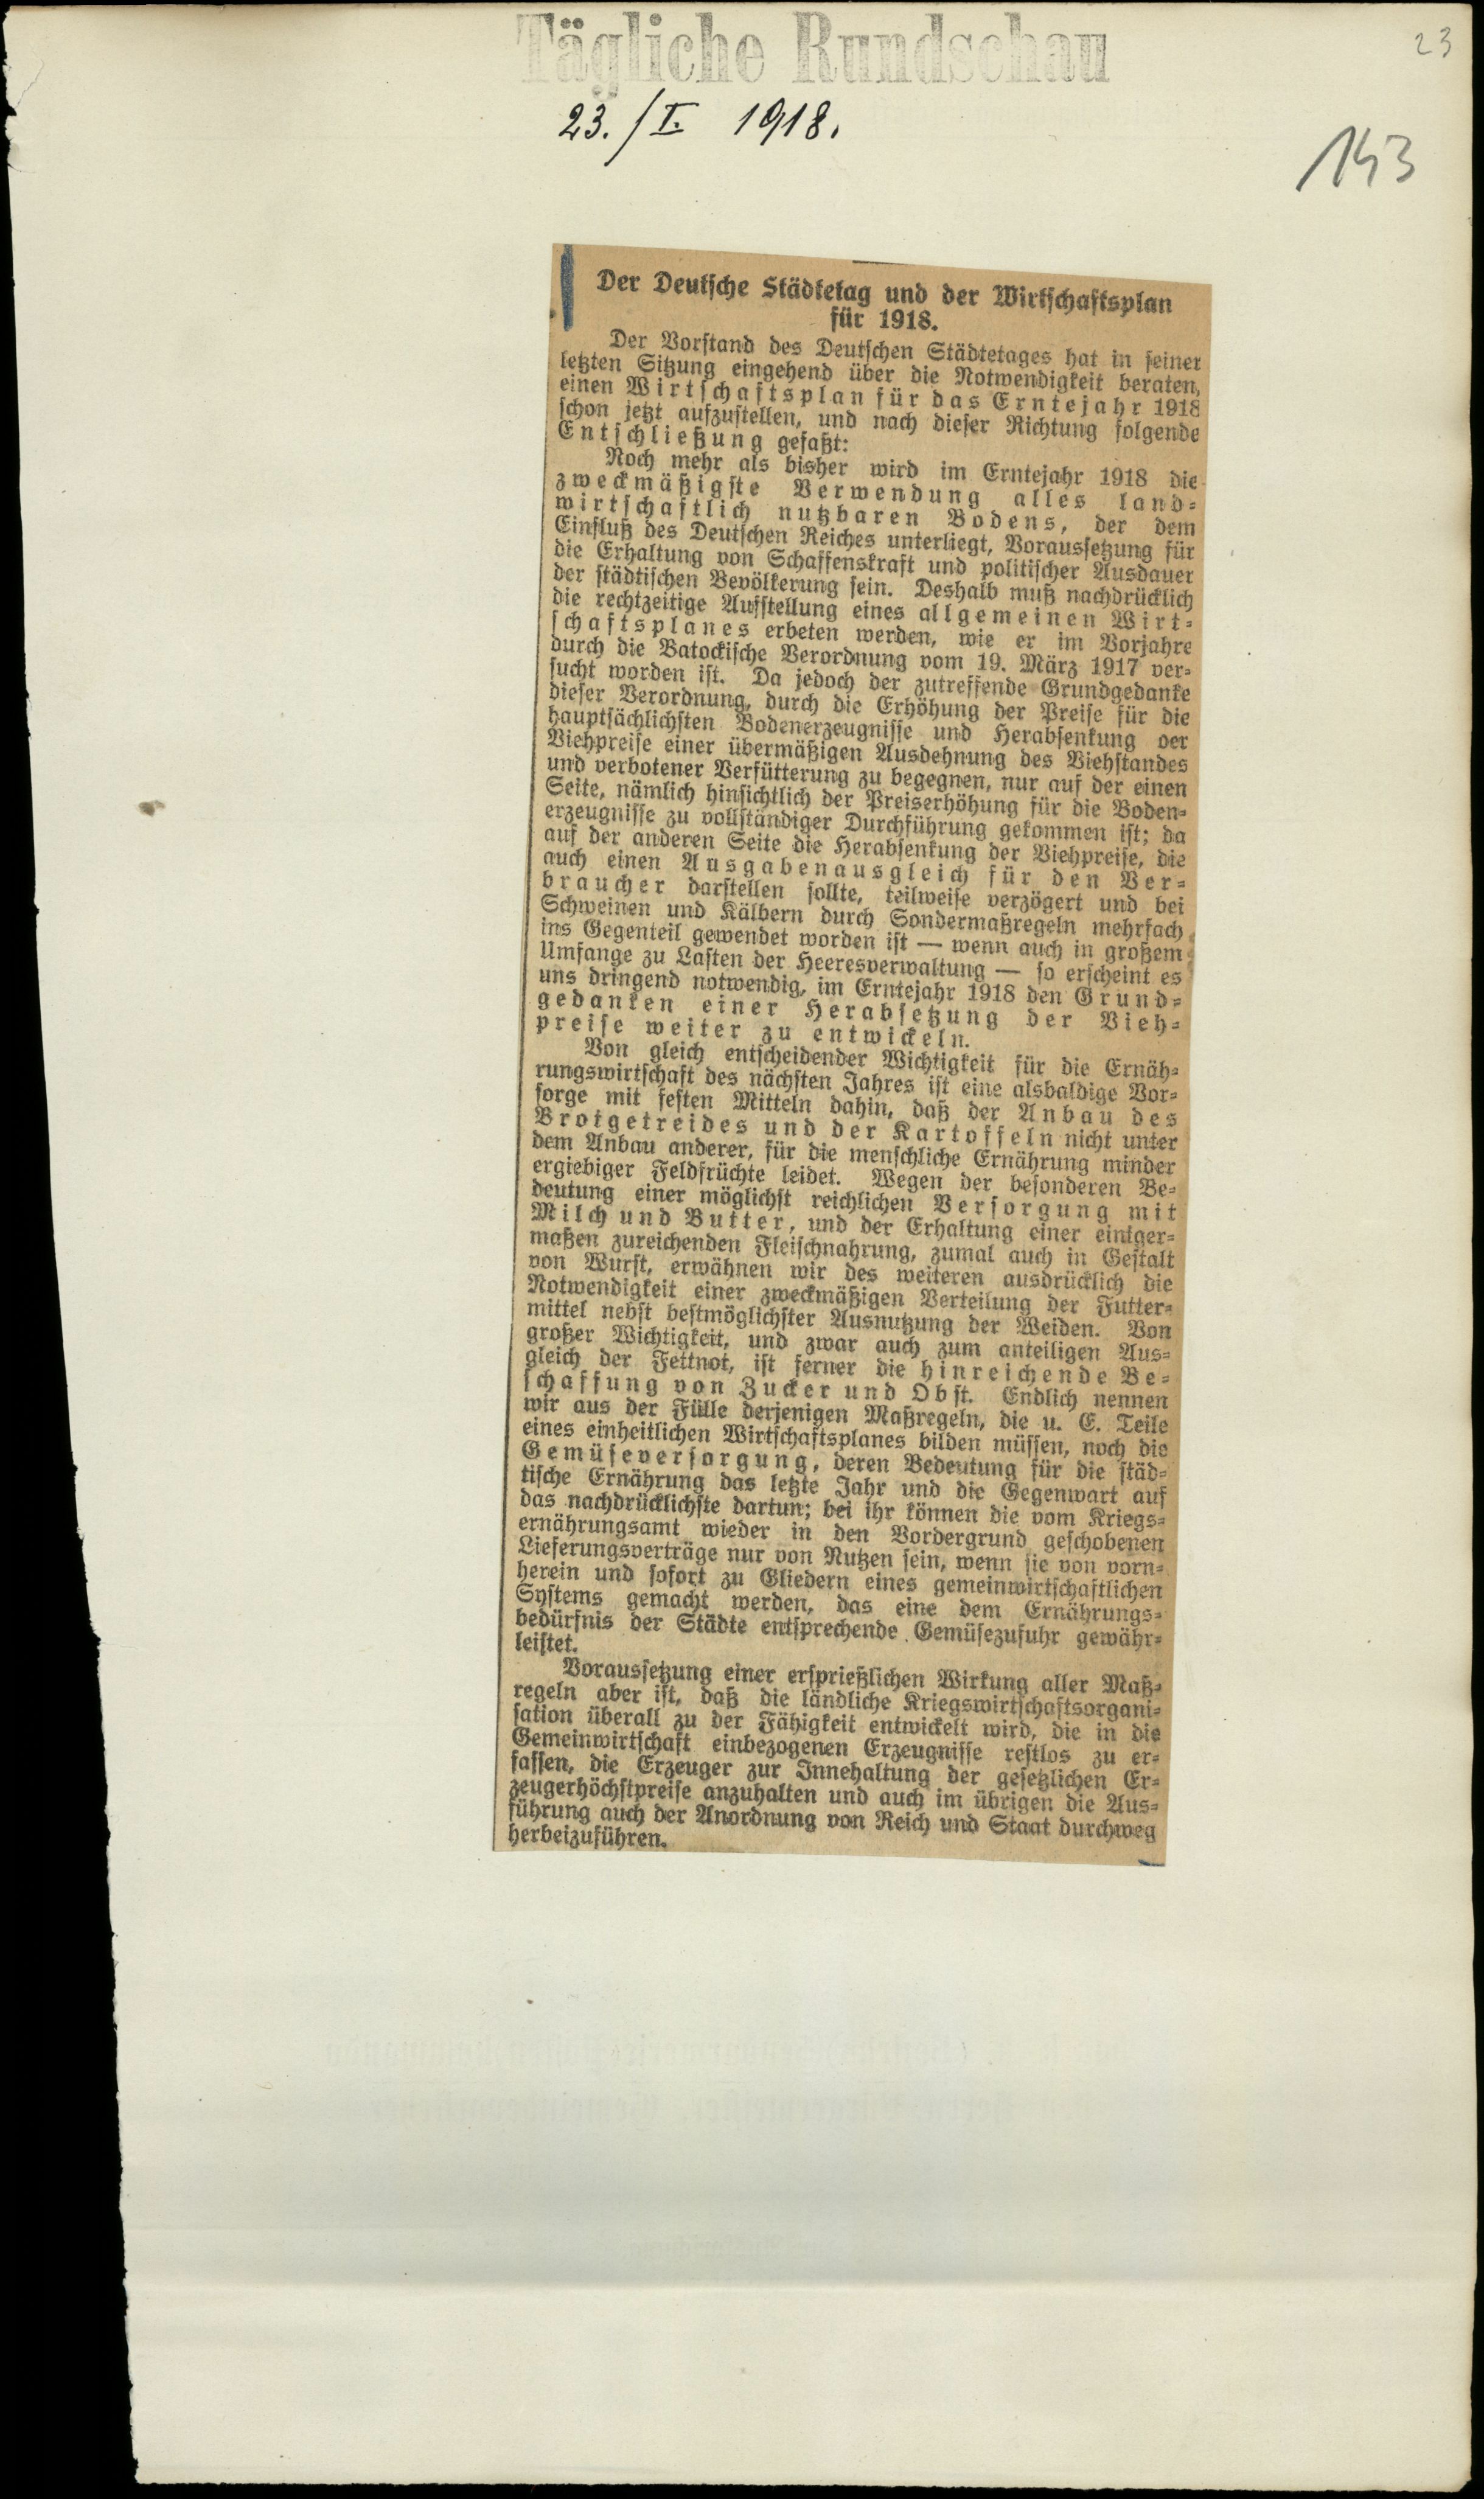 Tägliche Rundschau
23
23./I. 1918.
143
Der Deutsche Städtetag und der Wirtschaftsplan
für 1918.
Der Vorstand des Deutschen Städtetages hat in seiner
letzten Sitzung eingehend über die Notwendigkeit beraten,
einen Wirtschaftsplan für das Erntejahr 1918
schon jetzt aufzustellen, und nach dieser Richtung folgende
Entschließung gefaßt:
Noch mehr als bisher wird im Erntejahr 1918 die
zweckmäßigste Verwendung alles land-
wirtschaftlich nutzbaren Bodens, der dem
Einfluß des Deutschen Reiches unterliegt, Voraussetzung für
die Erhaltung von Schaffenskraft und politischer Ausdauer
der städtischen Bevölkerung sein. Deshalb muß nachdrücklich
die rechtzeitige Aufstellung eines allgemeinen Wirt-
schaftsplanes erbeten werden, wie er im Vorjahre
durch die Batockische Verordnung vom 19. März 1917 ver-
sucht worden ist. Da jedoch der zutreffende Grundgedanke
dieser Verordnung, durch die Erhöhung der Preise für die
hauptsächlichsten Bodenerzeugnisse und Herabsenkung der
Viehpreise einer übermäßigen Ausdehnung des Viehstandes
und verbotener Verfütterung zu begegnen, nur auf der einen
Seite, nämlich hinsichtlich der Preiserhöhung für die Boden-
erzeugnisse zu vollständiger Durchführung gekommen ist; da
auf der anderen Seite die Herabsenkung der Viehpreise, die
auch einen Ausgabenausgleich für den Ver-
braucher darstellen sollte, teilweise verzögert und bei
Schweinen und Kälbern durch Sondermaßregeln mehrfach
ins Gegenteil gewendet worden ist — wenn auch in großem
Umfange zu Lasten der Heeresverwaltung — so erscheint es
uns dringend notwendig, im Erntejahr 1918 den Grund-
gedanken einer Herabsetzung der Vieh-
preise weiter zu entwickeln.
Von gleich entscheidender Wichtigkeit für die Ernäh-
rungswirtschaft des nächsten Jahres ist eine alsbaldige Vor-
sorge mit festen Mitteln dahin, daß der Anbau des
Brotgetreides und der Kartoffeln nicht unter
dem Anbau anderer, für die menschliche Ernährung minder
ergiebiger Feldfrüchte leidet. Wegen der besonderen Be-
deutung einer möglichst reichlichen Versorgung mit
Milch und Butter, und der Erhaltung einer einiger-
maßen zureichenden Fleischnahrung, zumal auch in Gestalt
von Wurst, erwähnen wir des weiteren ausdrücklich die
Notwendigkeit einer zweckmäßigen Verteilung der Futter-
mittel nebst bestmöglichster Ausnutzung der Weiden. Von
großer Wichtigkeit, und zwar auch zum anteiligen Aus-
gleich der Fettnot, ist ferner die hinreichende Be-
schaffung von Zucker und Obst. Endlich nennen
wir aus der Fülle derjenigen Maßregeln, die u. E. Teile
eines einheitlichen Wirtschaftsplanes bilden müssen, noch die
Gemüseversorgung, deren Bedeutung für die städ-
tische Ernährung das letzte Jahr und die Gegenwart auf
das nachdrücklichste dartun; bei ihr können die vom Kriegs-
ernährungsamt wieder in den Vordergrund geschobenen
Lieferungsverträge nur von Nutzen sein, wenn sie von vorn-
herein und sofort zu Gliedern eines gemeinwirtschaftlichen
Systems gemacht werden, das eine dem Ernährungs-
bedürfnis der Städte entsprechende Gemüsezufuhr gewähr-
leistet.
Voraussetzung einer ersprießlichen Wirkung aller Maß-
regeln aber ist, daß die ländliche Kriegswirtschaftsorgani-
sation überall zu der Fähigkeit entwickelt wird, die in die
Gemeinwirtschaft einbezogenen Erzeugnisse restlos zu er-
fassen, die Erzeuger zur Innehaltung der gesetzlichen Er-
zeugerhöchstpreise anzuhalten und auch im übrigen die Aus-
führung auch der Anordnung von Reich und Staat durchweg
herbeizuführen.